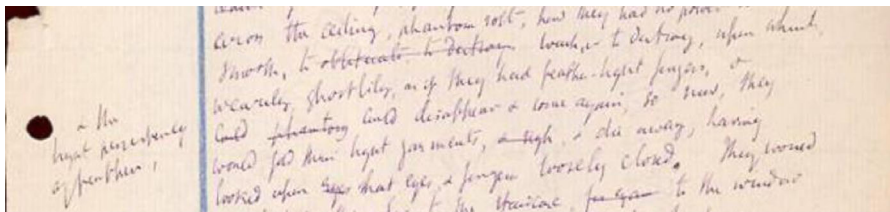 & the
light persistency
of feathers,
across the ceiling, phantom soft, how they had no power
smooth, to obliterate, to destroy, touch, or to destroy, upon which,
wearily, ghostlily, as if they had feather-light fingers, &
could phantom could disappear & come again, so now, they
would fold their light garments, & sigh, & die away, having
looked upon eyes shut eyes, & fingers loosely closed. They would
to the staircase, to the window